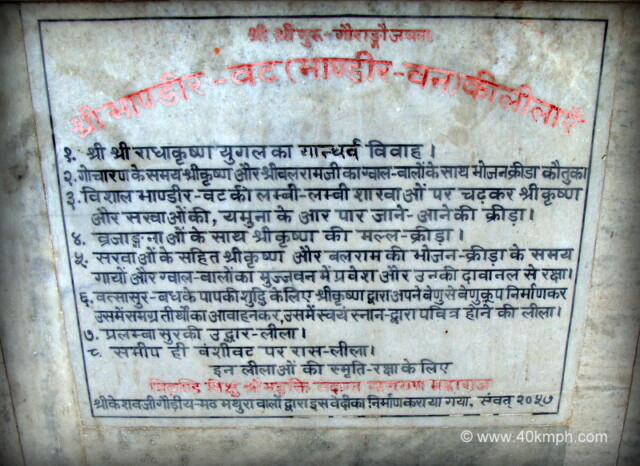 श्री श्री गुरु-गौराङ्गौ जयतः
श्री भाण्डीर-वट (भाण्डीर-वन) की लीलाएँ
१. श्री श्री राधाकृष्ण युगल का गान्धर्व विवाह।
२. गोचारण के समय श्रीकृष्ण और श्रीबलरामजी का ग्वाल-बालों के साथ भोजन क्रीडा कौतुक।
३. विशाल भाण्डीर-वट की लम्बी-लम्बी शाखाओं पर चढ़कर श्रीकृष्ण
और सखाओं की, यमुना के आर पार जाने-आने की क्रीड़ा।
४. व्रजाङ्गनाओं के साथ श्रीकृष्ण की मल्ल-क्रीड़ा।
५. सखाओं के सहित श्रीकृष्ण और बलराम की भोजन-क्रीड़ा के समय
गायों और ग्वाल-बालों का मुञ्जवन में प्रवेश और उनकी दावानल से रक्षा।
६. वत्सासुर-बध के पाप की शुद्धि के लिए श्रीकृष्ण द्वारा अपने वेणु से वेणुकूप निर्माण कर
उसमें समग्र तीर्थों का आवाहन कर, उसमें स्वयं स्नान-द्वारा पवित्र होने की लीला।
७. प्रलम्बासुर की उद्धार-लीला।
८. समीप ही वंशीवट पर रास-लीला।
इन लीलाओं की स्मृति-रक्षा के लिए
भिक्षु श्रीमद्भक्ति वेदान्त नारायण महाराज
श्रीकेशवजी गौड़ीय-मठ मथुरा वालों द्वारा इस वेदी का निर्माण कराया गया. संवत् २०५७
© www.40kmph.com